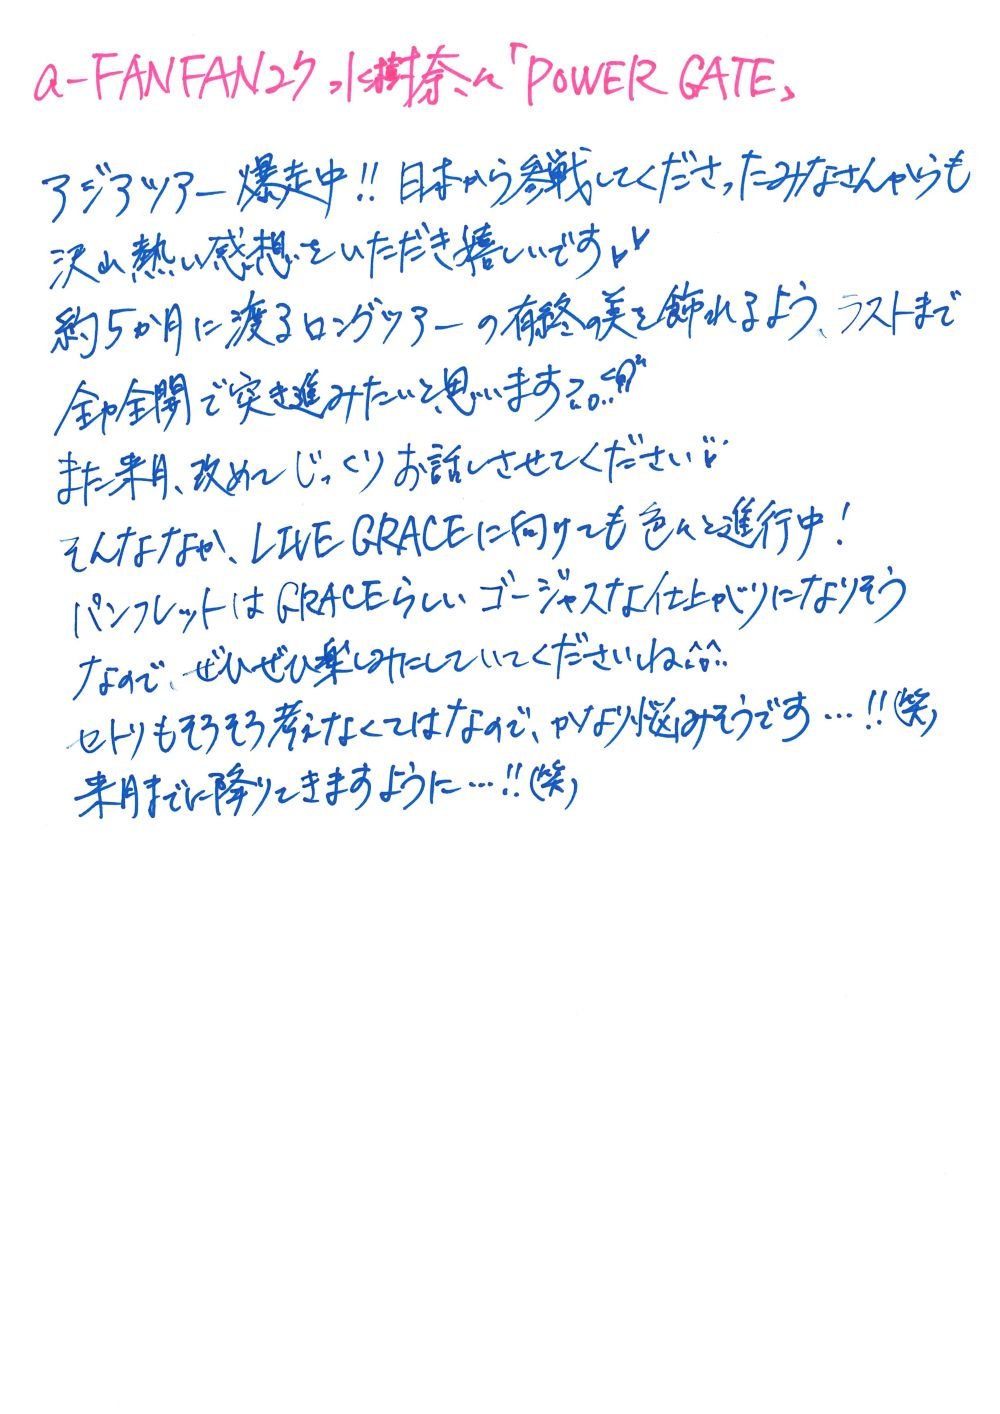 a-FANFAN27 水樹奈々「POWER GATE」
アジアツアー爆走中!! 日本から参戦してくださったみなさんからも
沢山熱い感想をいただき嬉しいです♥♥
約5か月に渡るロングツアーの有終の美を飾れるよう、ラストまで
全力全開で突き進みたいと思います
また来月、改めてじっくりお話しさせてください♥
そんななか、LIVE GRACEに向けても色々と進行中!
パンフレットはGRACEらしいゴージャスな仕上がりになりそう
なので、ぜひぜひ楽しみにしていてくださいね
セトリもそろそろ考えなくてはなので、かなり悩みそうです…!!(笑)
来月までに降りてきますように…!!(笑)